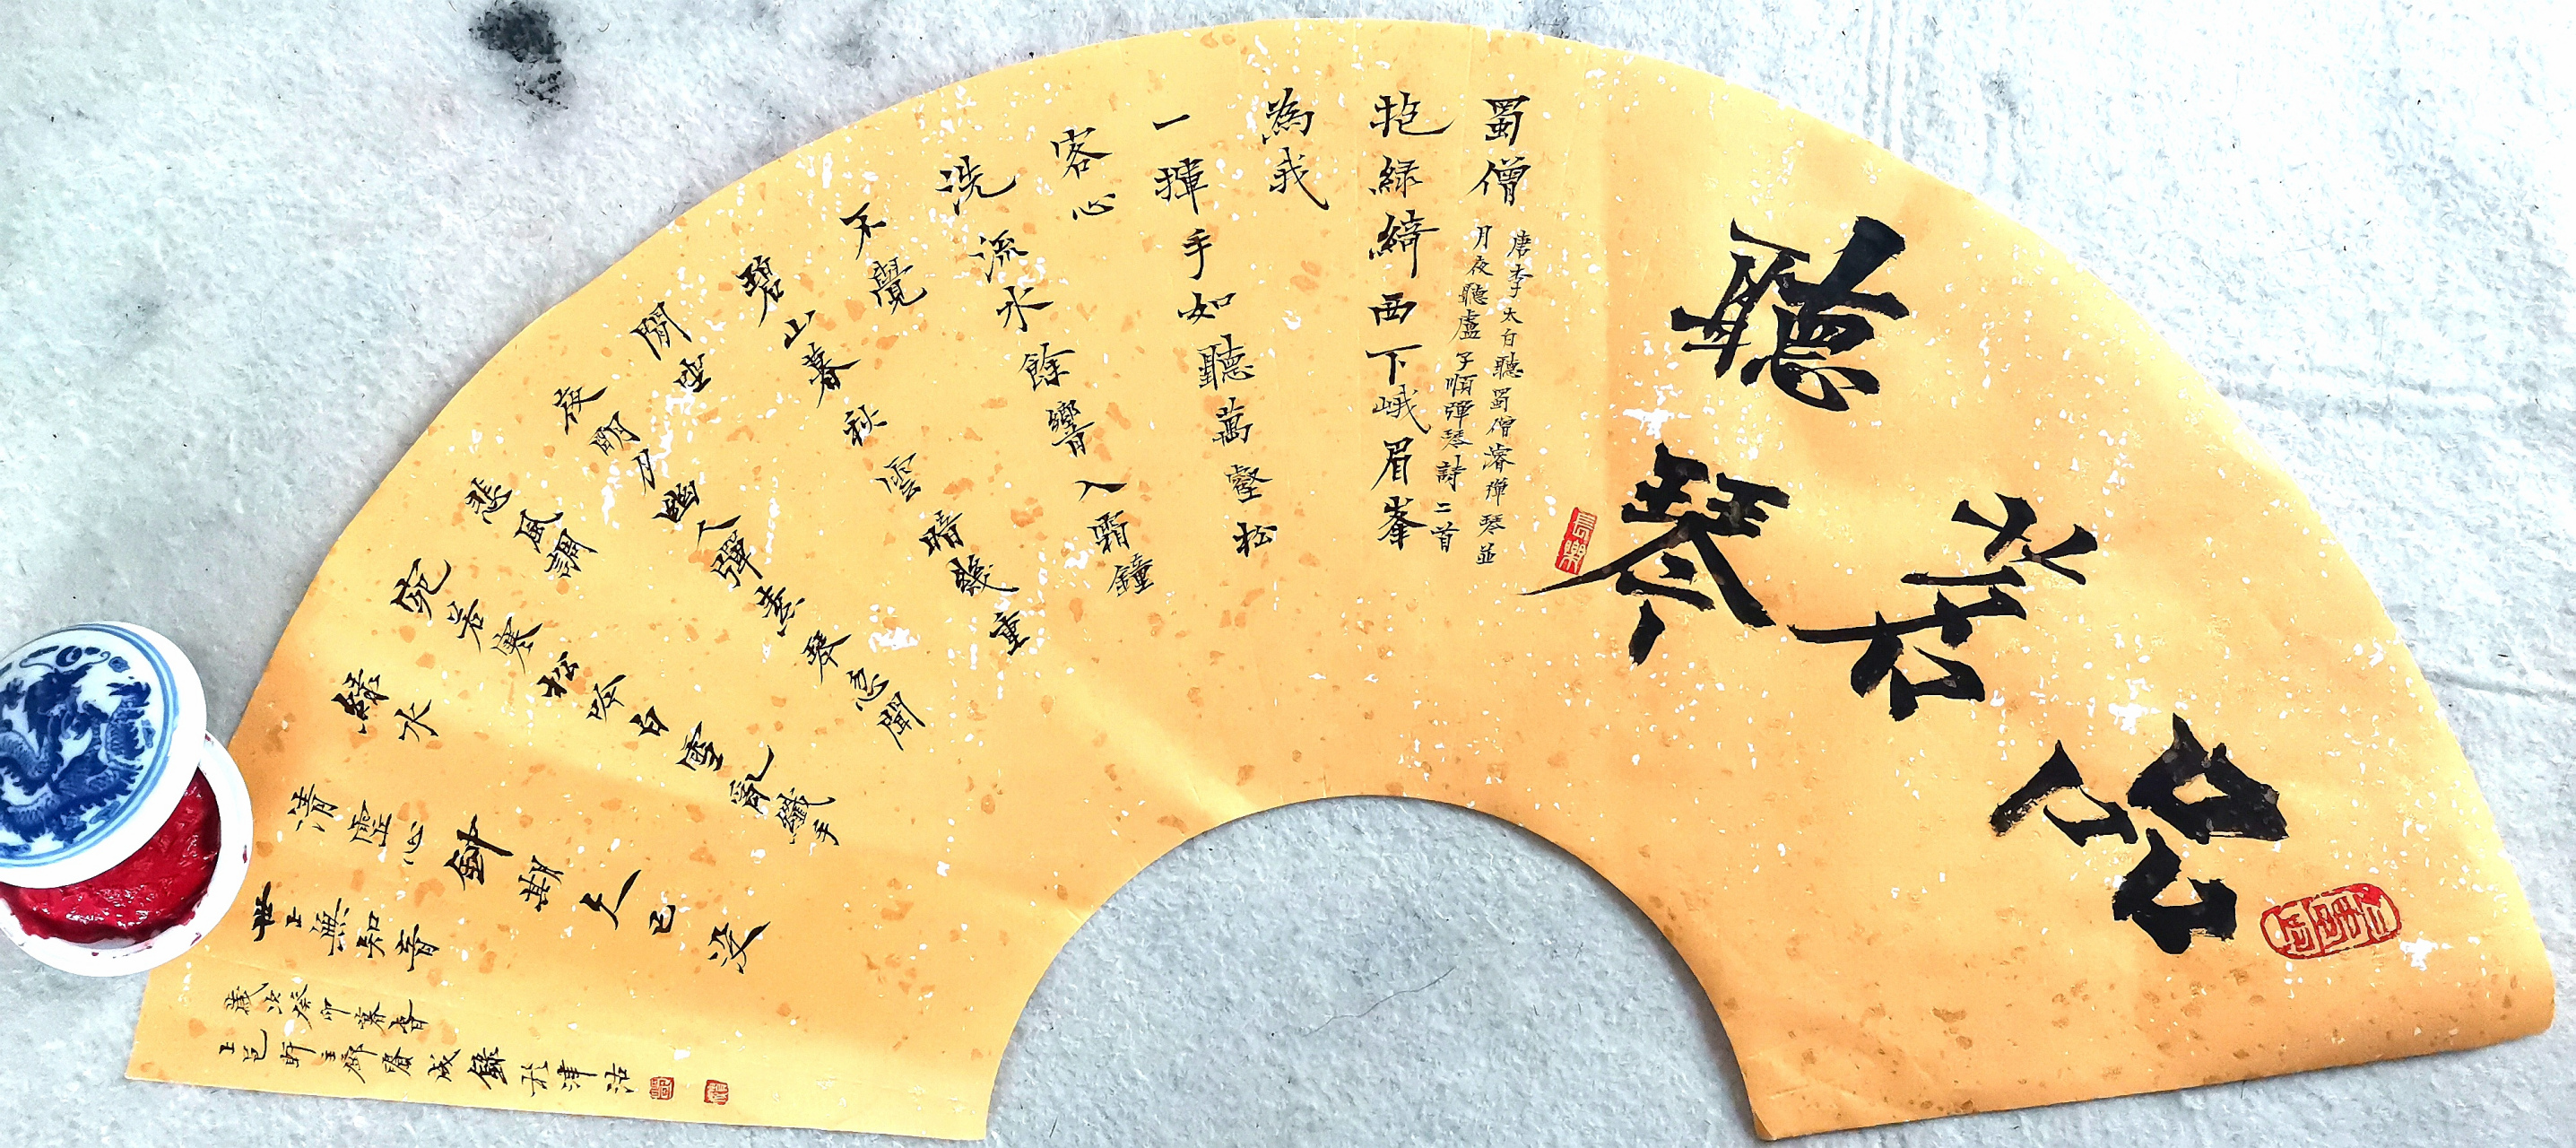 品
茗
聽琴
長樂
蜀僧
唐李太白聽蜀僧濬彈琴並
月夜聽盧子順彈琴詩二首
抱綠綺西下峨眉峯
為我
一揮手如聽萬壑松
客心
洗流水餘響入霜鐘
不覺
碧山暮秋雲暗幾重
閒坐
夜明月幽人彈素琴忽聞
悲風調
宛若寒松吟白雪亂纖手
綠水
清虛心鍾期久已没
世上無知音
歲次癸卯暮春
上邑軒主鄭成錄於津沽